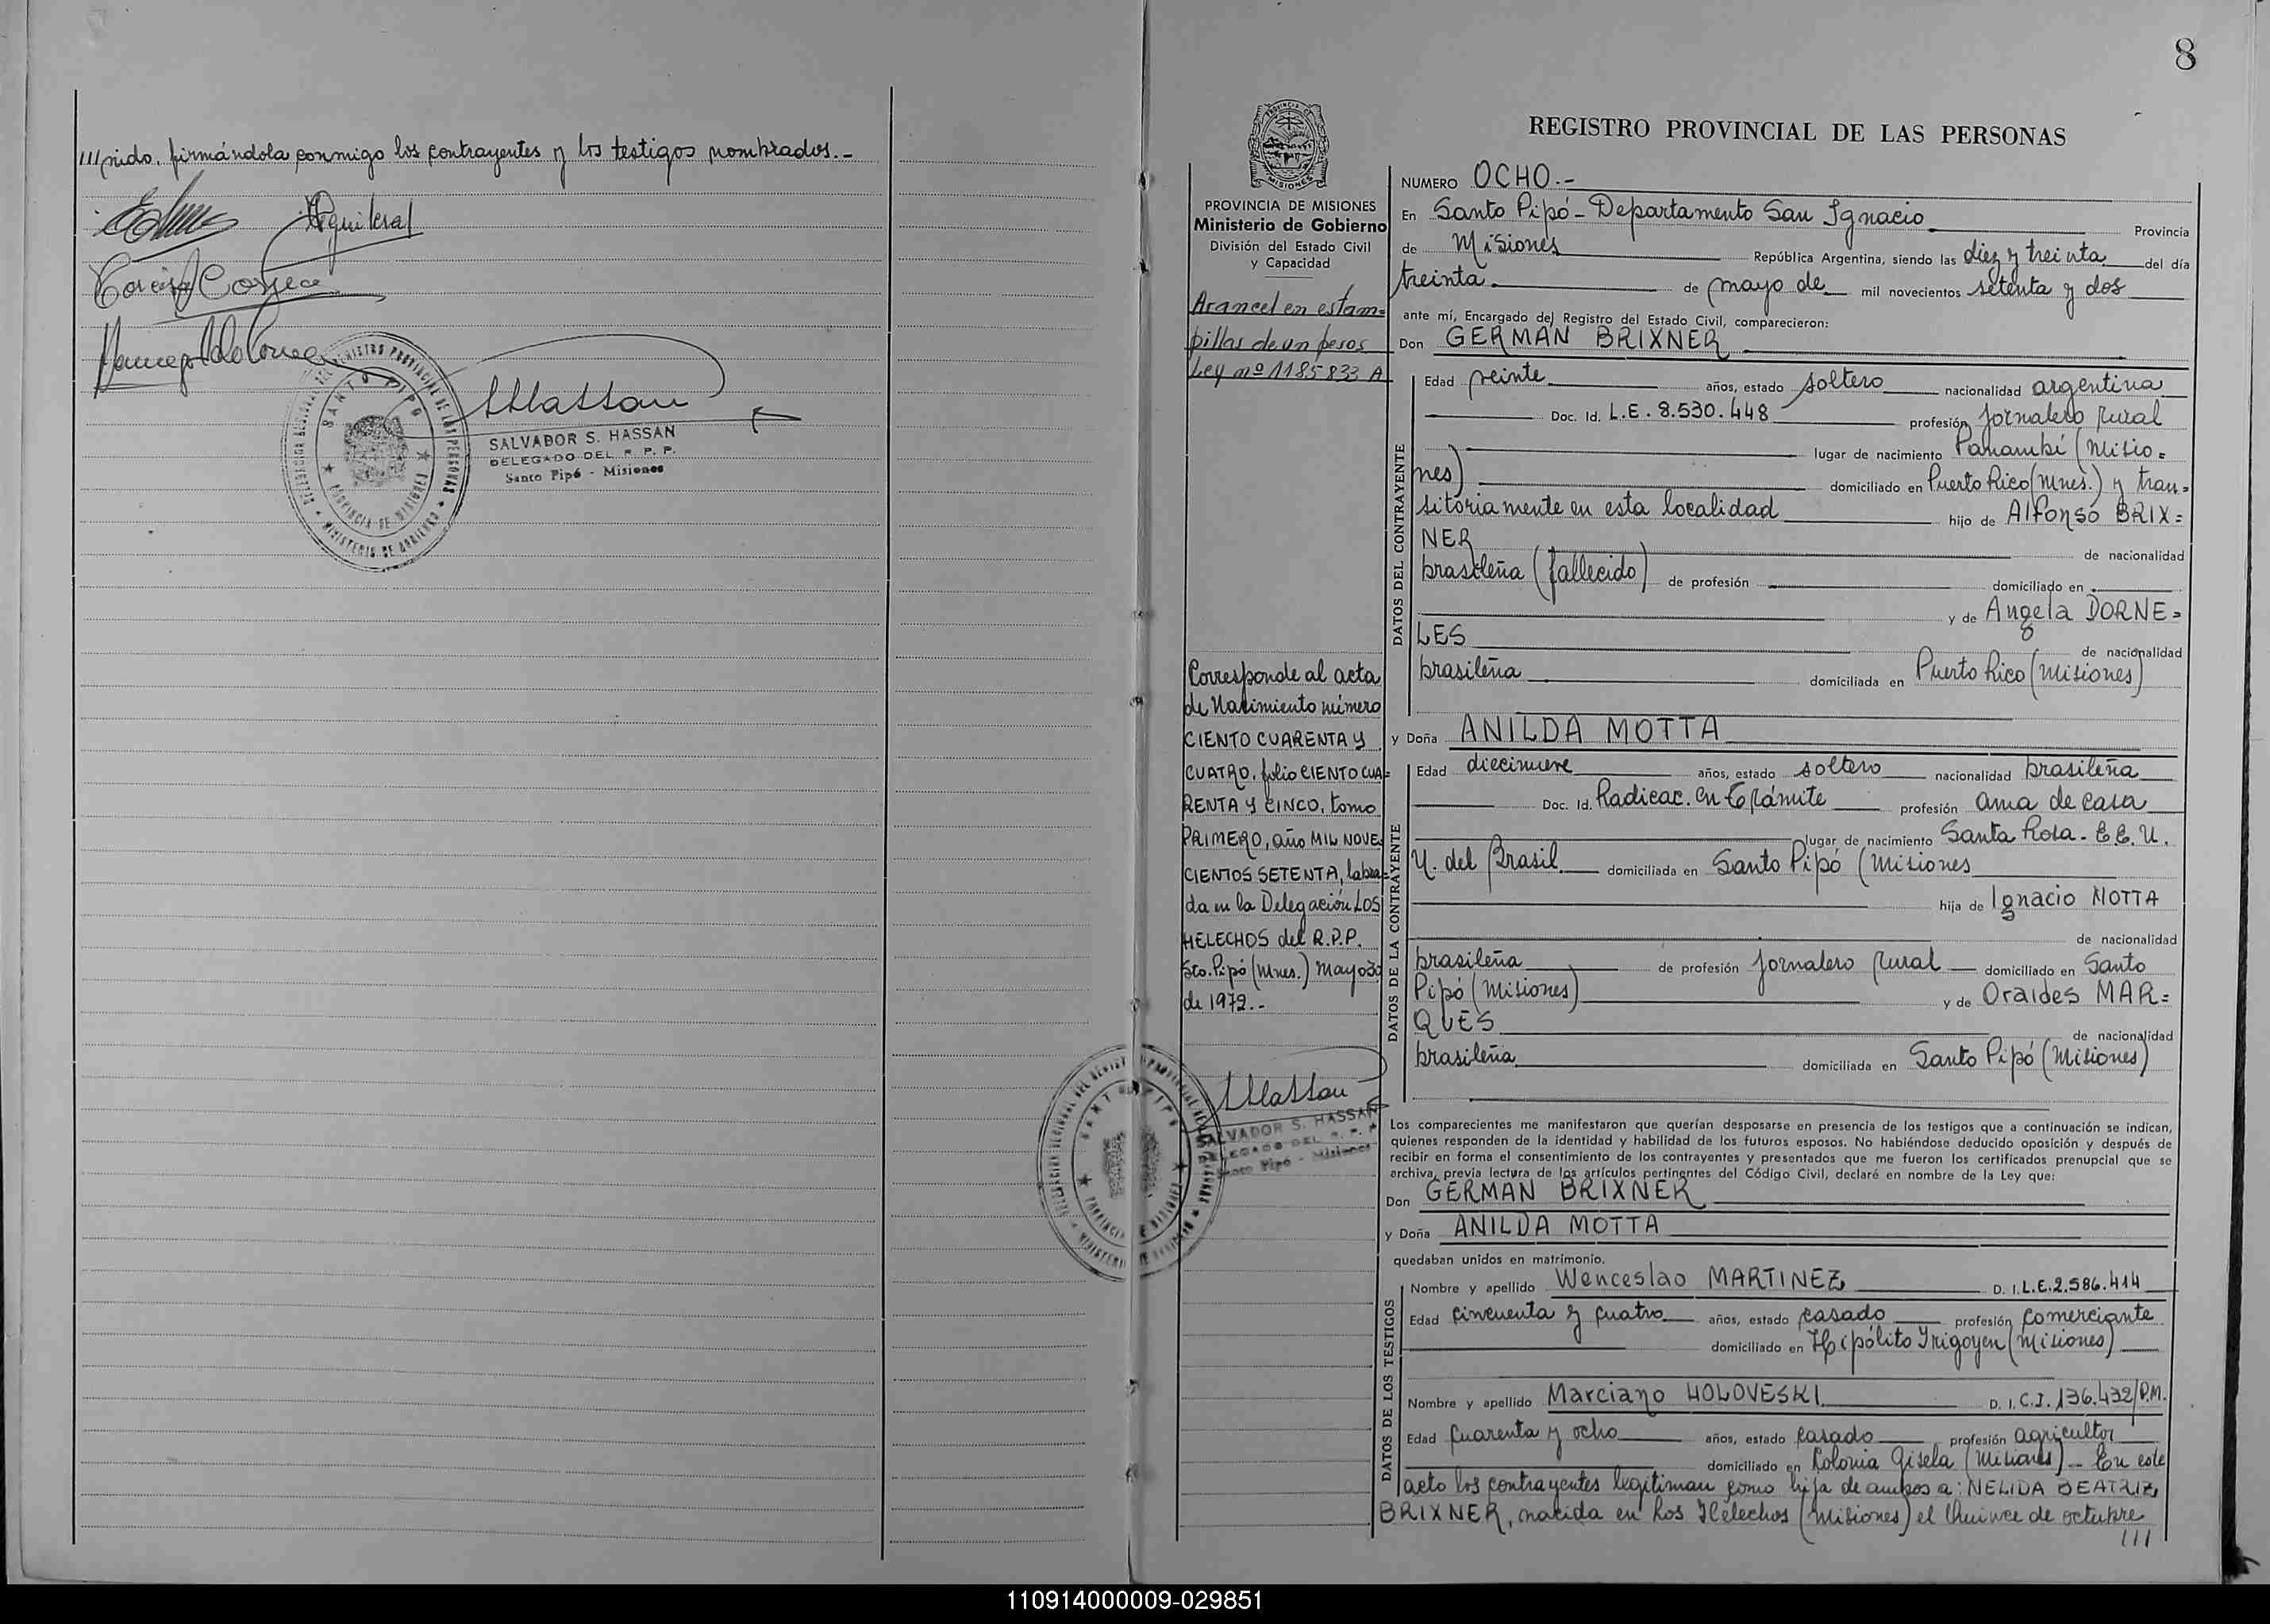 ///nido, firmándola conmigo los contrayentes y los testigos nombrados.-
Aguilera
SALVADOR S. HASSAN
DELEGADO DEL R. P. P.
Santo Pipó - Misiones
SANTO PIPO
PROVINCIA DE MISIONES
8
PROVINCIA DE MISIONES
Ministerio de Gobierno
División del Estado Civil
y Capacidad
Arancel en estam=
pillas de un pesos
Ley nº 1185833 A
Corresponde al acta
de Nacimiento número
CIENTO CUARENTA Y
CUATRO, folio CIENTO CUA=
RENTA Y CINCO, tomo
PRIMERO, año MIL NOVE=
CIENTOS SETENTA, labra=
da en la Delegación LOS
HELECHOS del R.P.P.
Sto. Pipó (Mnes.) Mayo 30
de 1972.-
SALVADOR S. HASSAN
DELEGADO DEL R. P. P.
Santo Pipó - Misiones
REGISTRO PROVINCIAL DE LAS PERSONAS
NUMERO OCHO.-
En Santo Pipó - Departamento San Ignacio Provincia
de Misiones República Argentina, siendo las diez y treinta del día
treinta de mayo de mil novecientos setenta y dos
ante mí, Encargado del Registro del Estado Civil, comparecieron:
Don GERMAN BRIXNER
DATOS DEL CONTRAYENTE
Edad veinte años, estado soltero nacionalidad argentina
Doc. Id. L.E. 8.530.448 profesión Jornalero rural
lugar de nacimiento Panambí (Misio=
nes) domiciliado en Puerto Rico (Mnes.) y tran=
sitoriamente en esta localidad hijo de Alfonso BRIX=
NER de nacionalidad
brasileña (fallecido) de profesión domiciliado en
y de Angela DORNE=
LES de nacionalidad
brasileña domiciliada en Puerto Rico (Misiones)
y Doña ANILDA MOTTA
DATOS DE LA CONTRAYENTE
Edad diecinueve años, estado soltero nacionalidad brasileña
Doc. Id. Radicac. en trámite profesión ama de casa
lugar de nacimiento Santa Rosa - E.E. U.
U. del Brasil domiciliada en Santo Pipó (Misiones
hija de Ignacio MOTTA
de nacionalidad
brasileña de profesión Jornalero rural domiciliado en Santo
Pipó (Misiones) y de Oraides MAR=
QUES de nacionalidad
brasileña domiciliada en Santo Pipó (Misiones)
Los comparecientes me manifestaron que querían desposarse en presencia de los testigos que a continuación se indican,
quienes responden de la identidad y habilidad de los futuros esposos. No habiéndose deducido oposición y después de
recibir en forma el consentimiento de los contrayentes y presentados que me fueron los certificados prenupcial que se
archiva, previa lectura de los artículos pertinentes del Código Civil, declaré en nombre de la Ley que:
Don GERMAN BRIXNER
y Doña ANILDA MOTTA
quedaban unidos en matrimonio.
DATOS DE LOS TESTIGOS
Nombre y apellido Wenceslao MARTINEZ D. I. L.E. 2.586.414
Edad cincuenta y cuatro años, estado casado profesión comerciante
domiciliado en Hipólito Yrigoyen (Misiones)
Nombre y apellido Marciano HOLOVESKI D. I. C.I. 136.432/P.M.
Edad cuarenta y ocho años, estado casado profesión agricultor
domiciliado en Colonia Gisela (Misiones) - En este
acto los contrayentes legitiman como hija de ambos a: NELIDA BEATRIZ
BRIXNER, nacida en Los Helechos (Misiones) el Quince de octubre
///
110914000009-029851